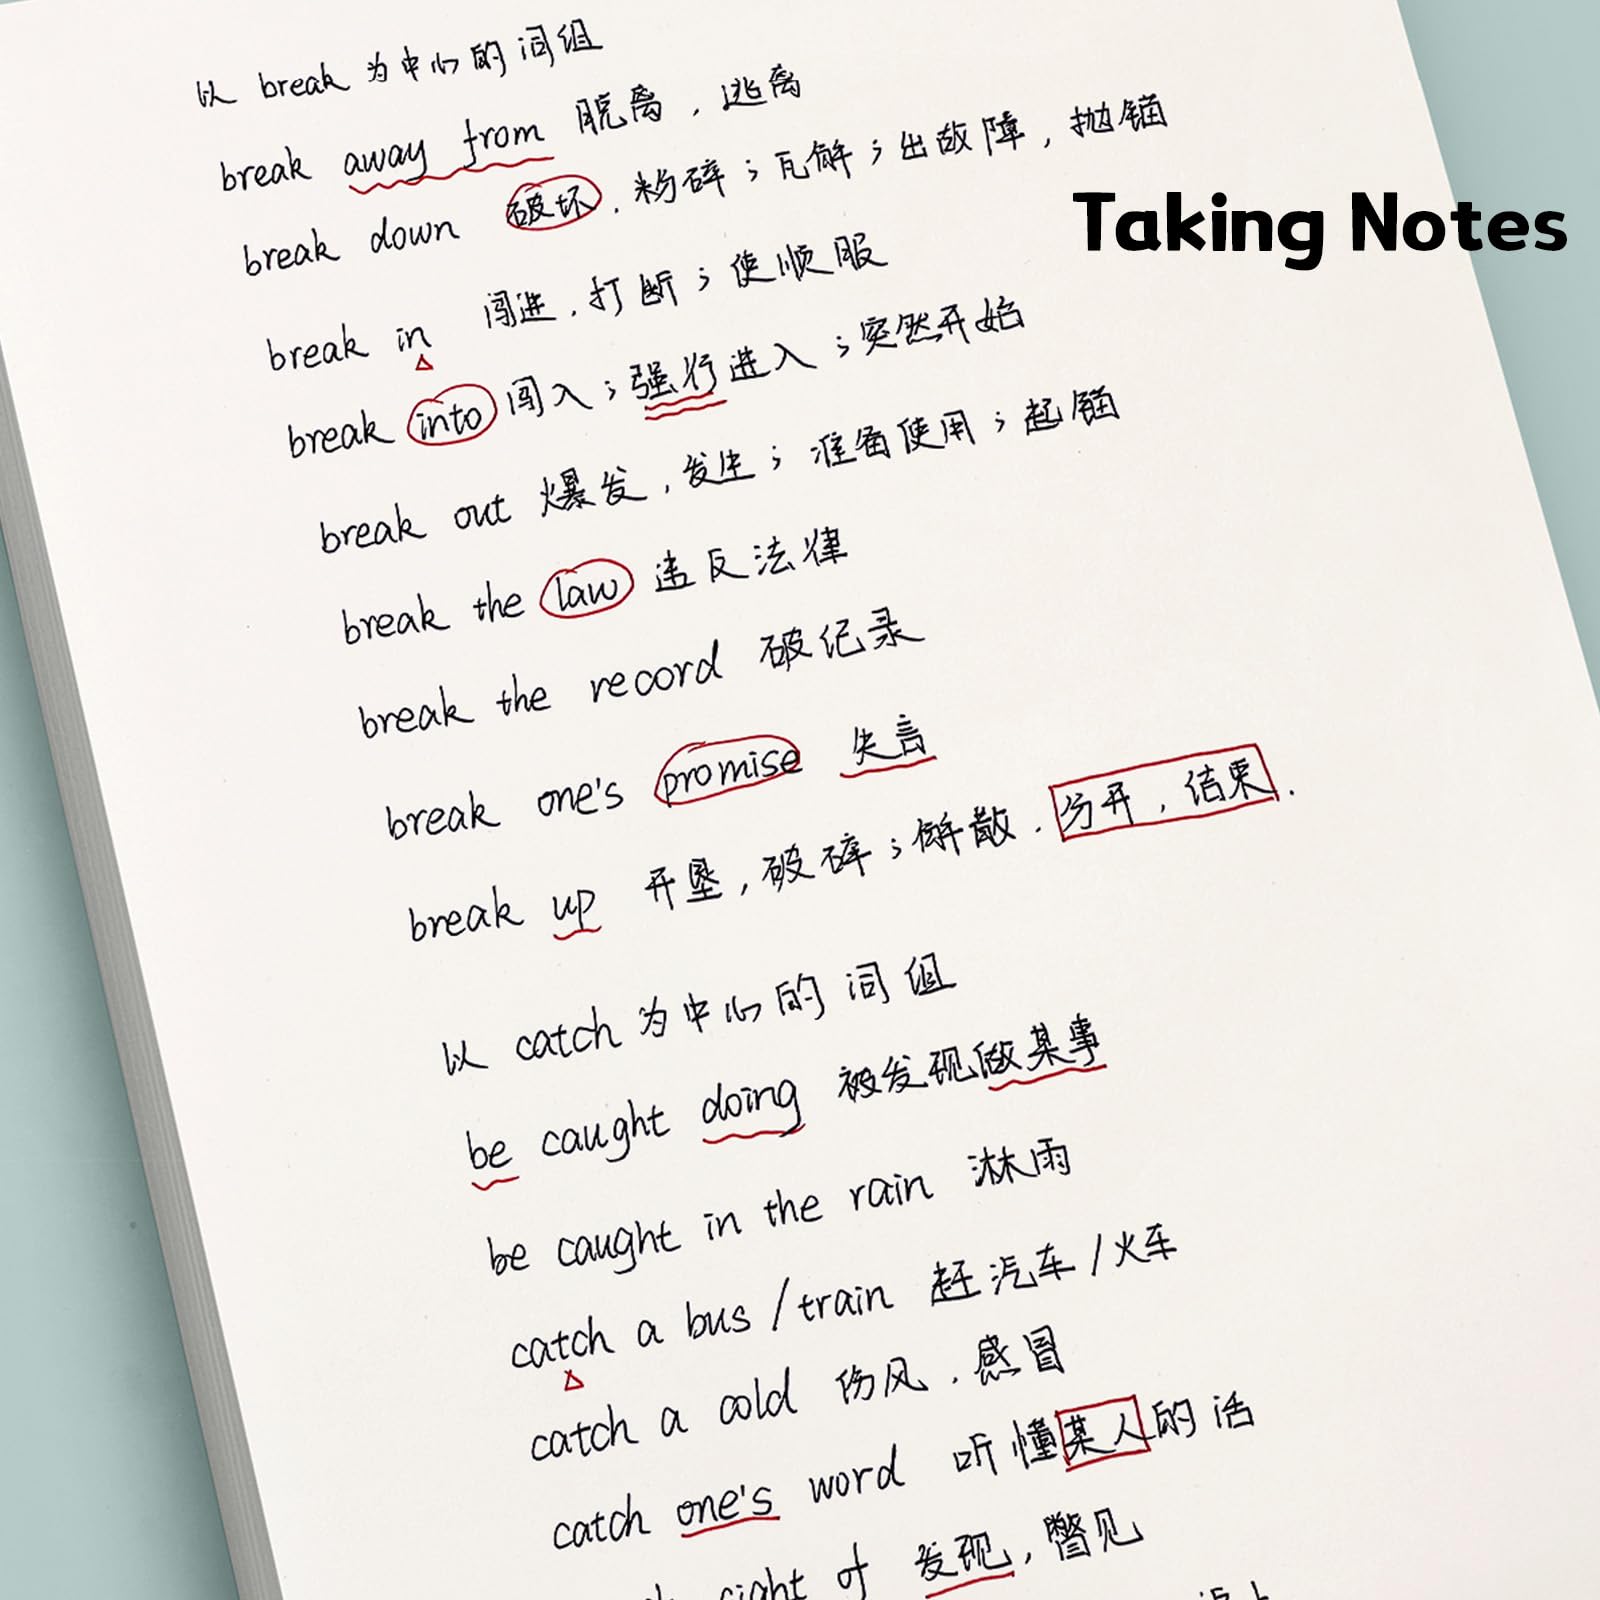 以 break 为中心的词组
break away from 脱离，逃离
break down 破坏，粉碎；瓦解；出故障，抛锚
Taking Notes
break in 闯进，打断；使顺服
break into 闯入；强行进入；突然开始
break out 爆发，发生；准备使用；起锚
break the law 违反法律
break the record 破纪录
break one's promise 失言
break up 开垦，破碎；解散，分开，结束.
以 catch 为中心的词组
be caught doing 被发现做某事
be caught in the rain 淋雨
catch a bus/train 赶汽车/火车
catch a cold 伤风，感冒
catch one's word 听懂某人的话
sight of 发现，瞥见